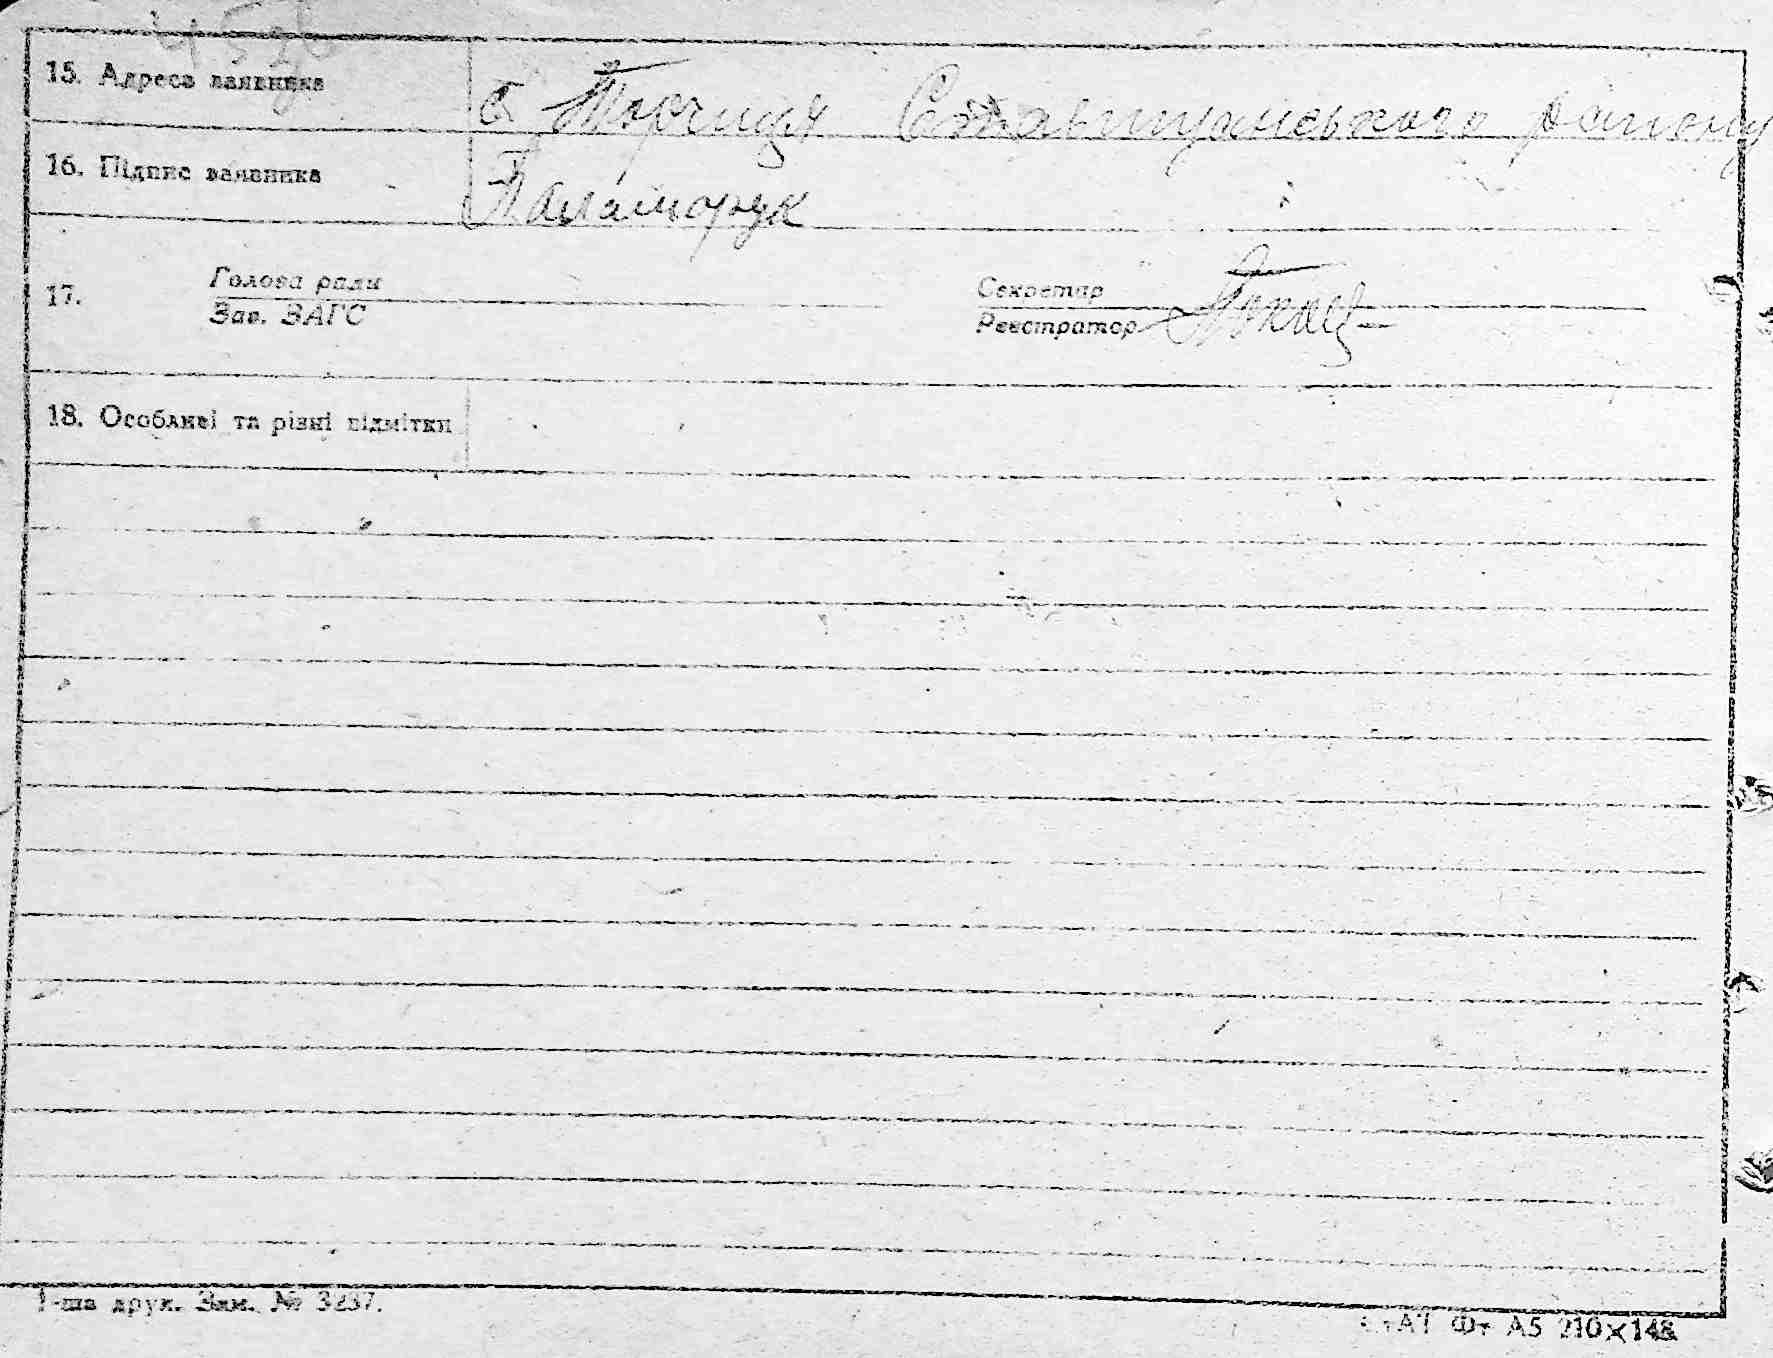 15. Адреса заявника с. Торчиця Ставищанського району
16. Підпис заявника Паламорук
17. Голова ради Секретар
Зав. ЗАГС Реєстратор
18. Особливі та різні відмітки
1-ша друк. Зам. № 3237.
Фт А5 210×148